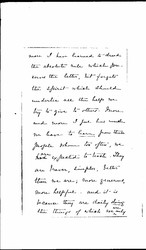 more I have learned to dread
the absolute rule which gov-
erns the letter, but forgets
the spirit which should
underlie all the help we
try to give to others. More
and more I find how much
we have to learn from these
people whom so often, we
had expected to teach. They
are braver, simpler, better
than we are; more generous,
more helpful. and it is
because they are daily doing
the things of which we only